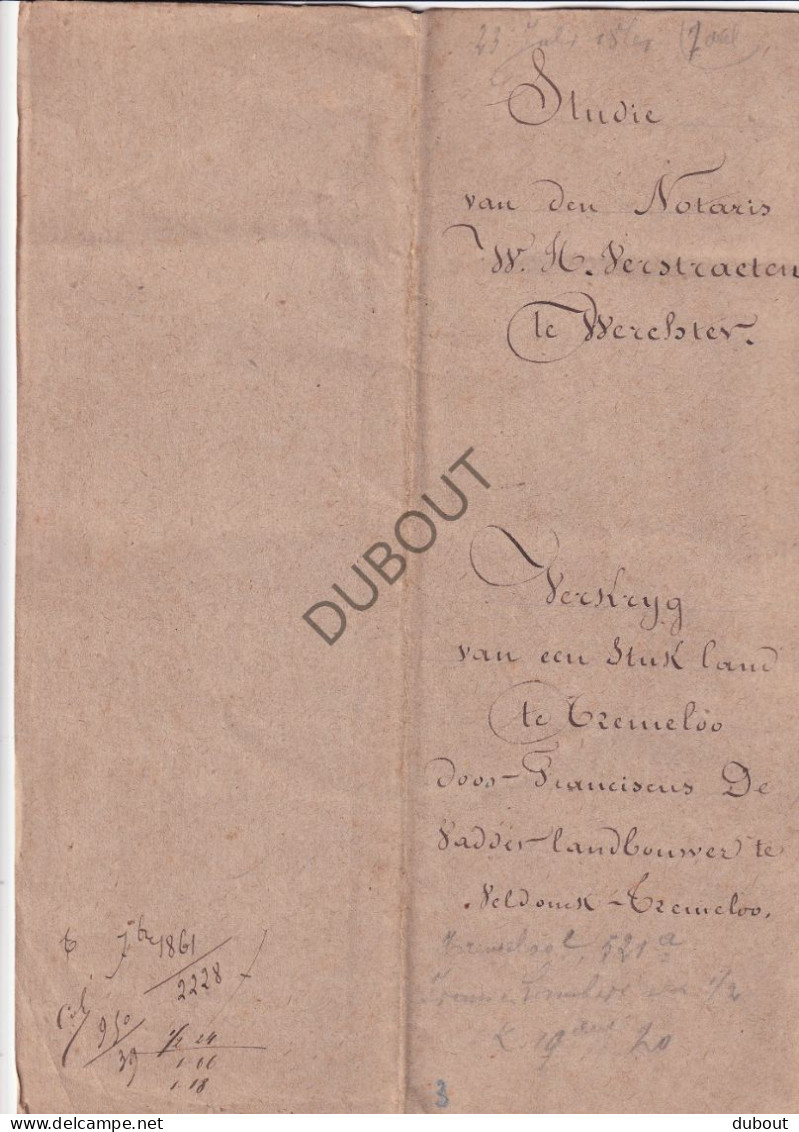 23 Juli
Studie
van den Notaris
W. H. Verstraeten
te Werchter.
Verkryg
van een Stuk land
te Tremeloo
door Franciscus De
Vadder landbouwer te
Veldonck-Tremeloo.
521 a
1/2
K 19 20
7bre 1861
2228
950
39 1/2 24
1.16
1.18
3
DUBOUT
delcampe.net
dubout